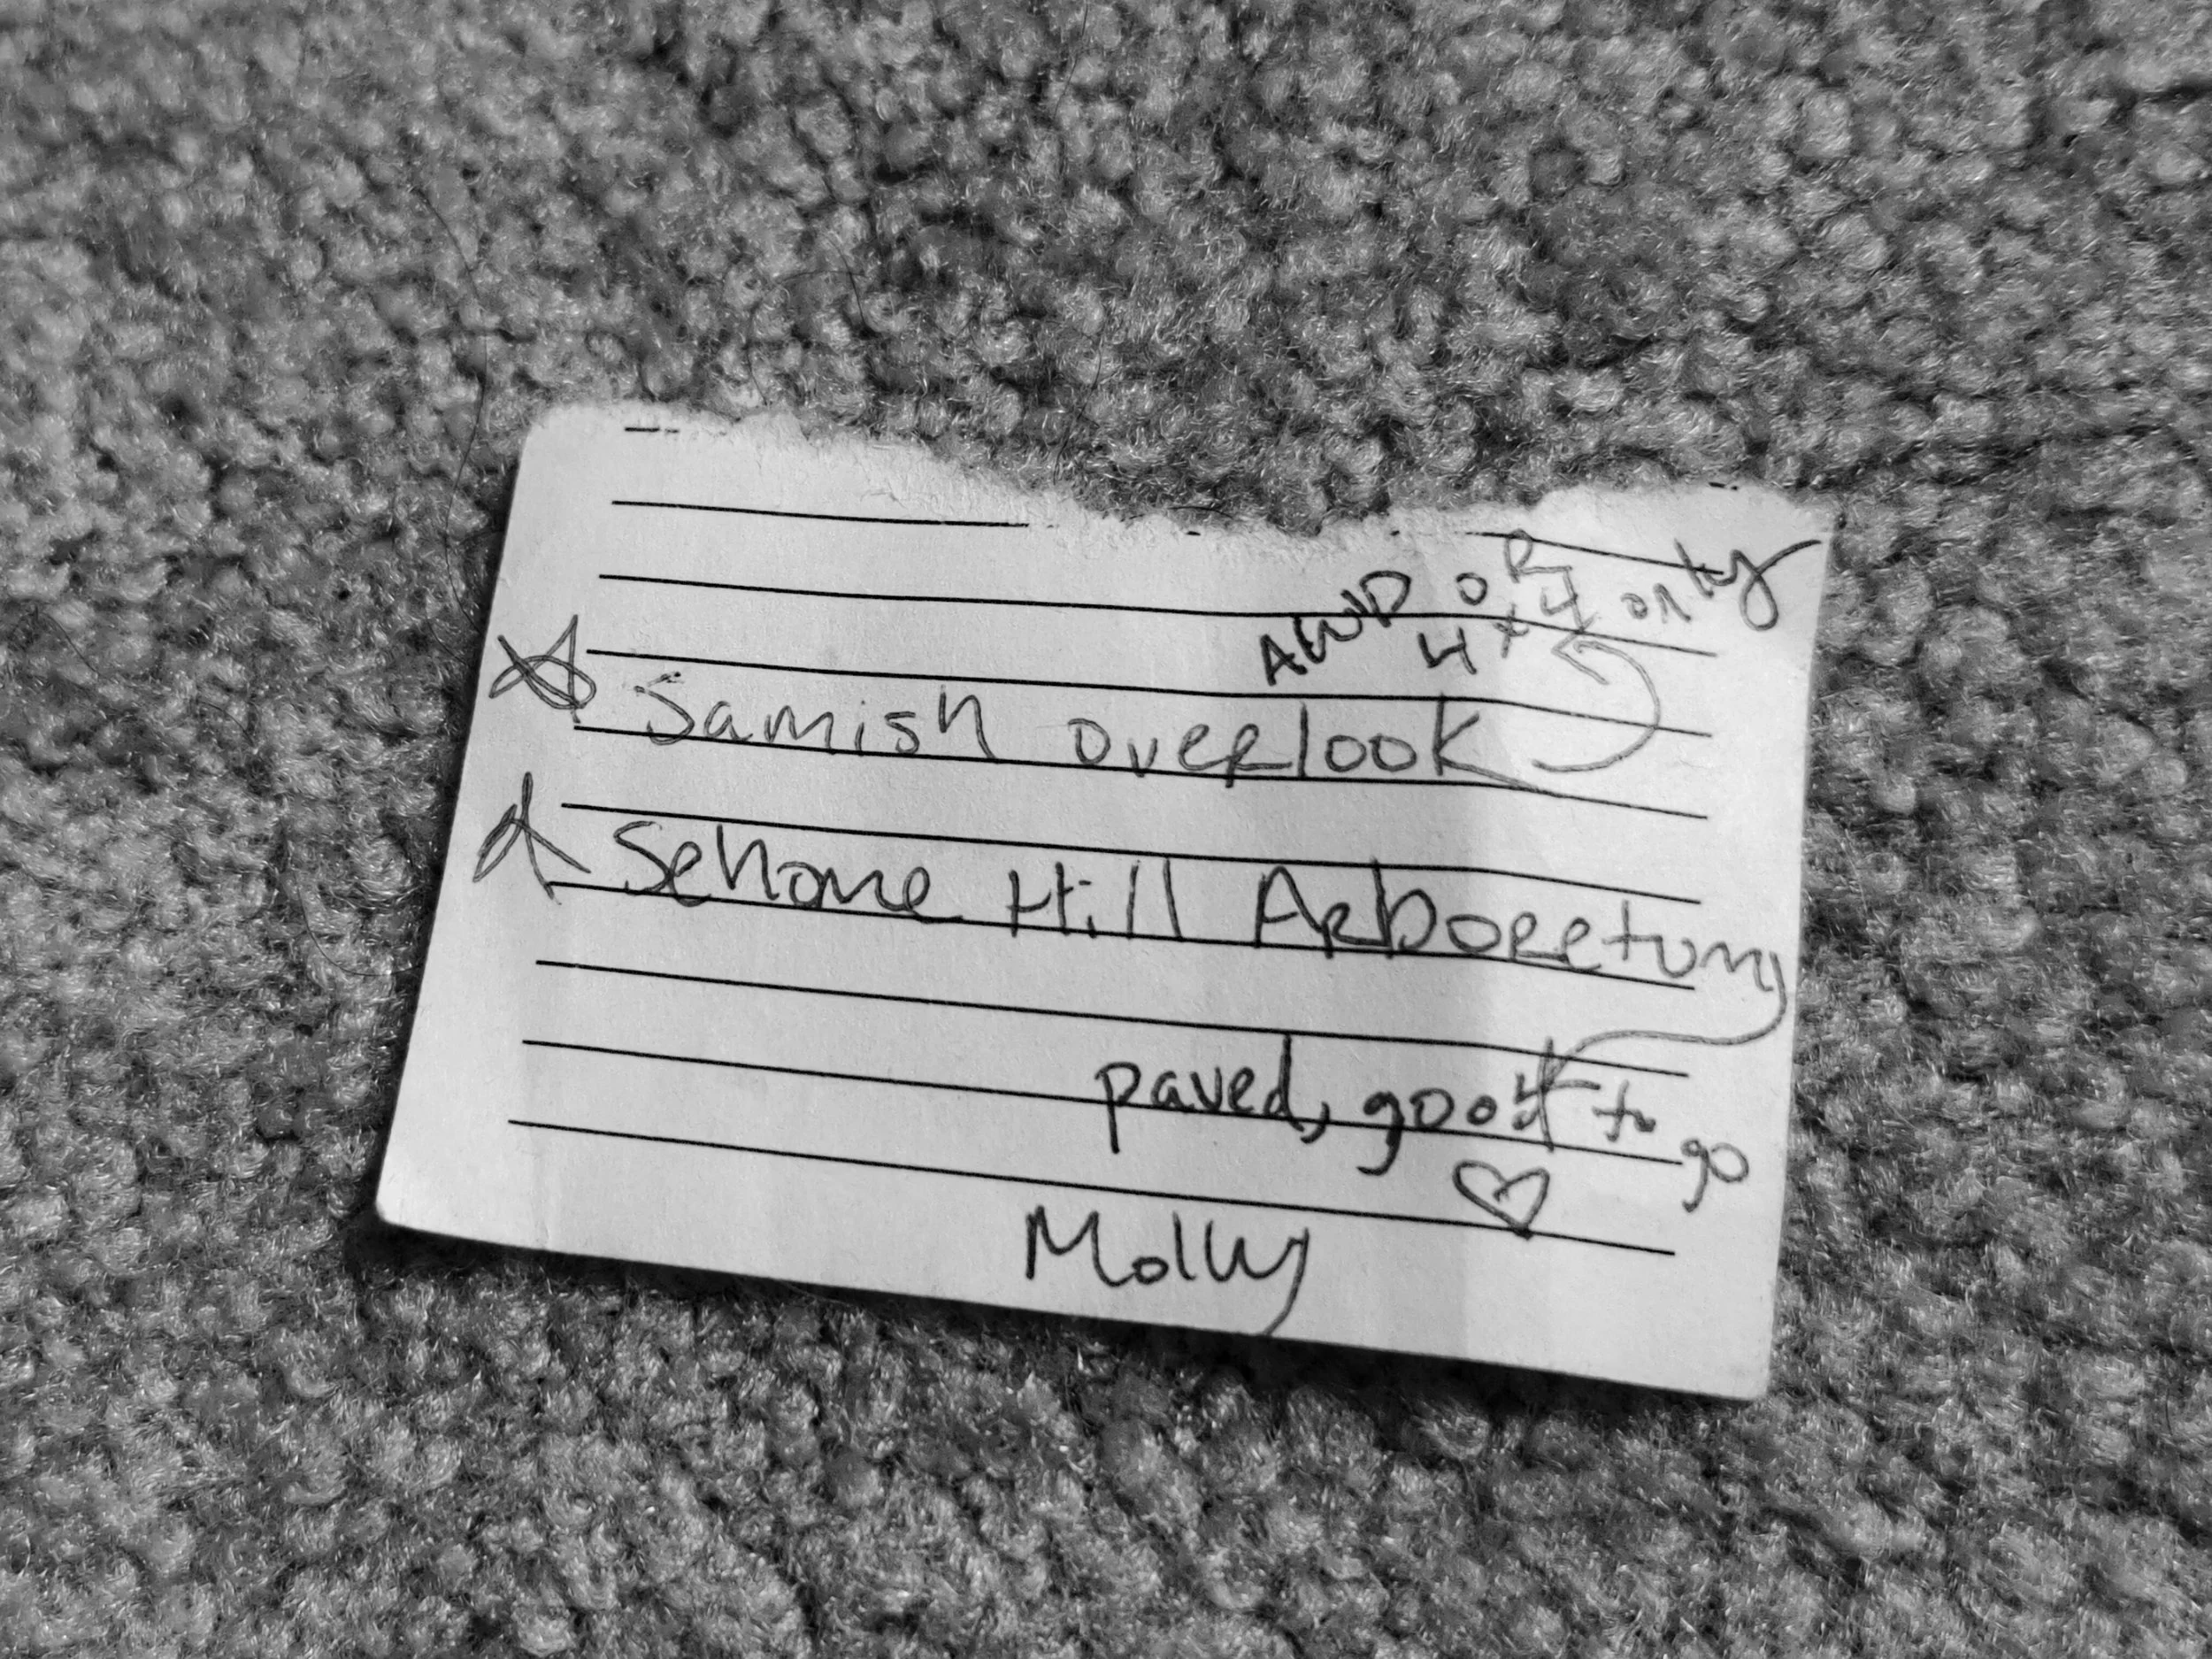 AWD OR
4x4 only
Samish overlook
Sehome Hill Arboretum
paved, good to go
Molly